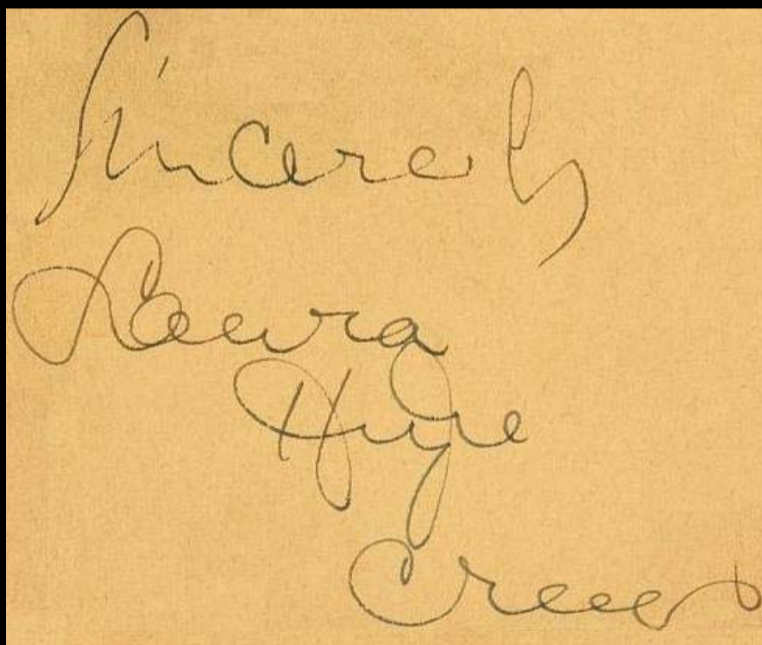 Sincerely
Laura
Hope
Crews